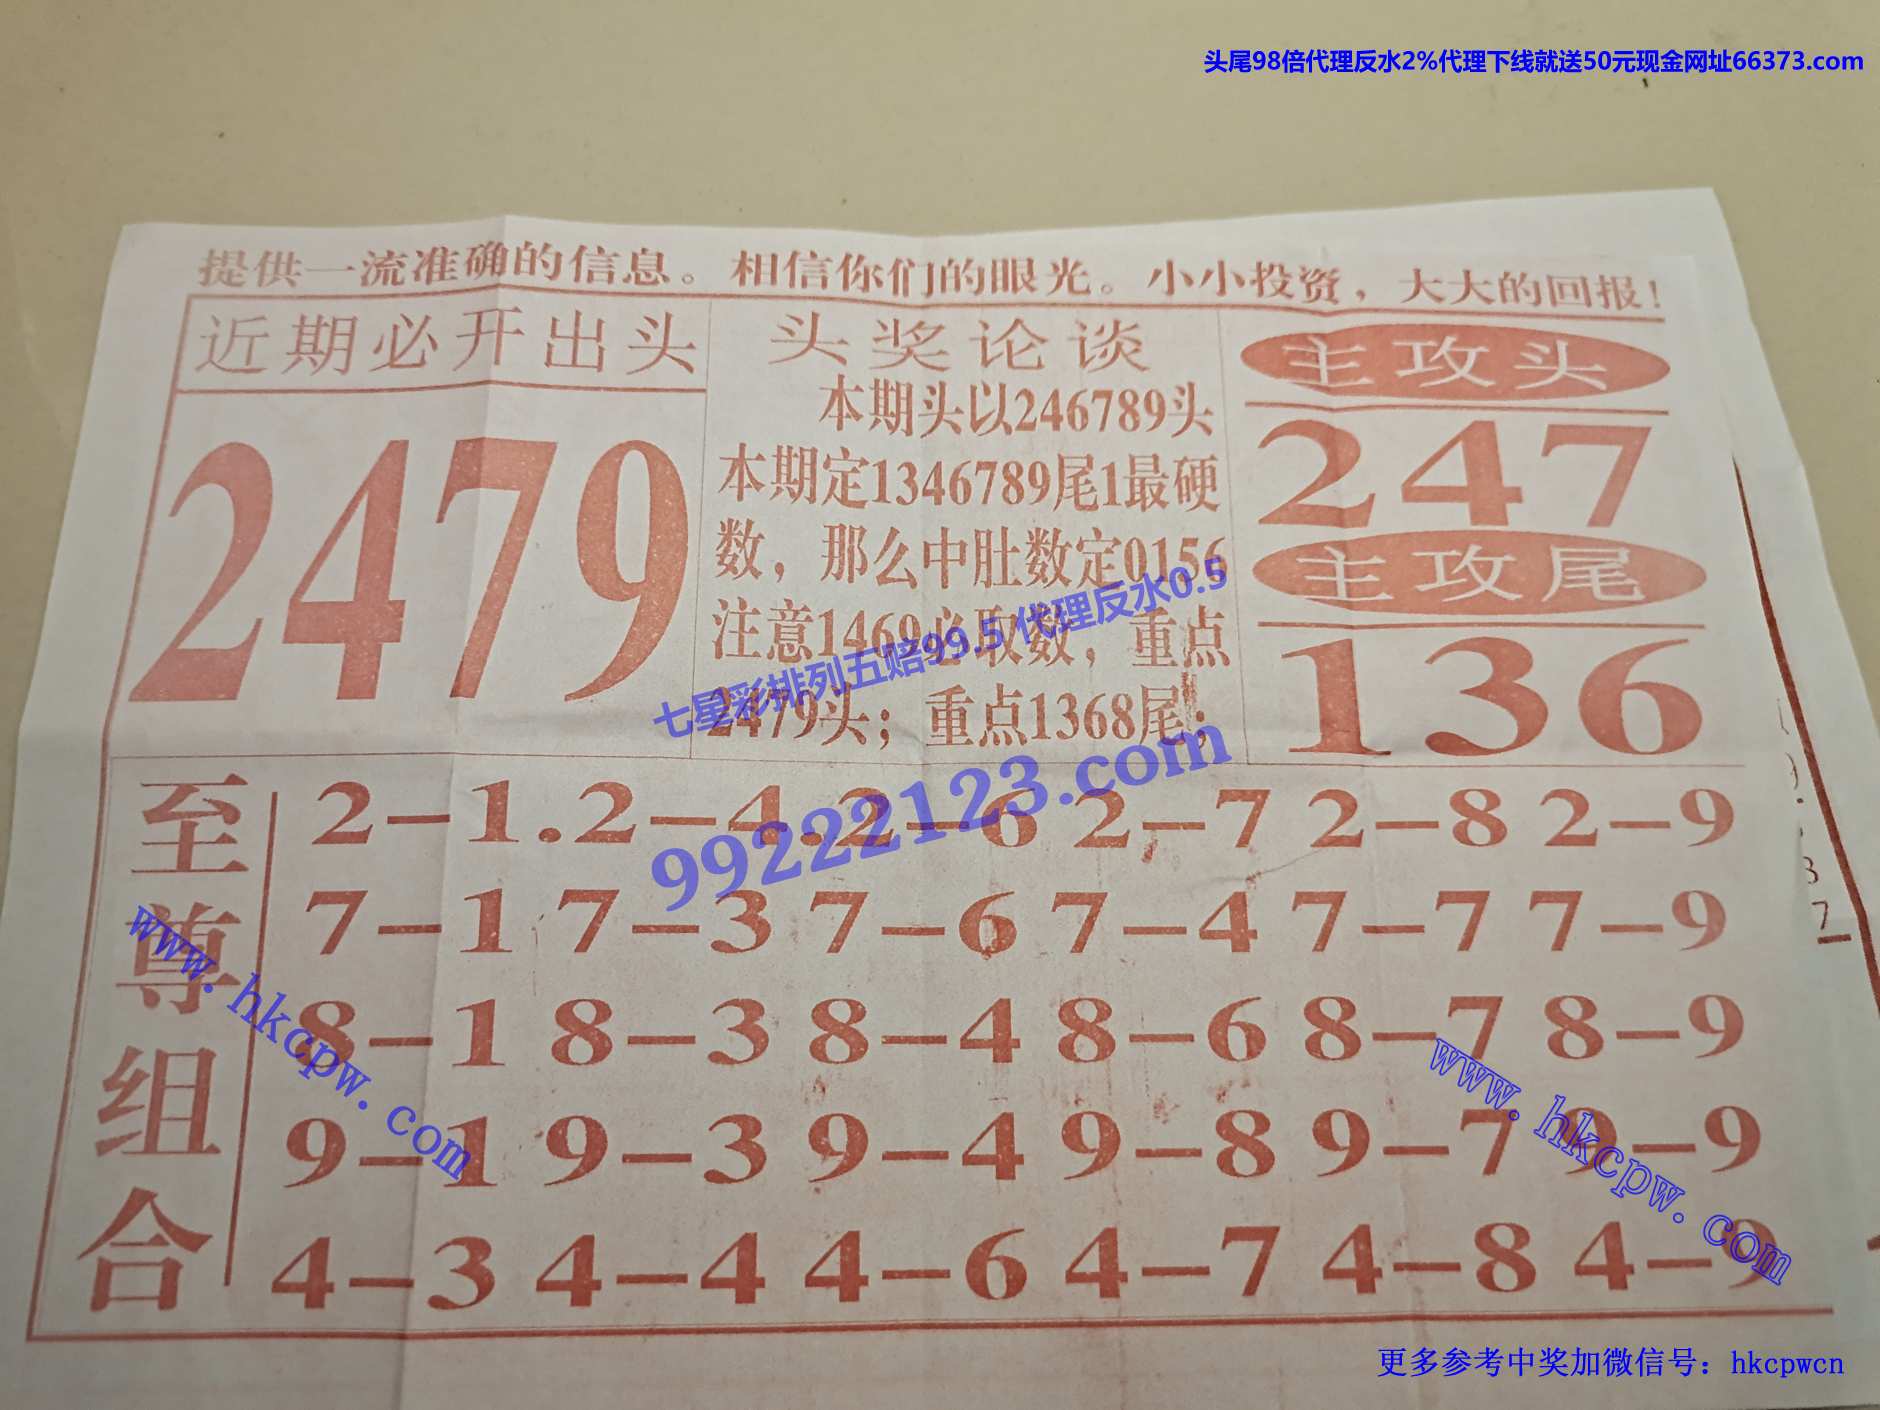 头尾98倍代理反水2%代理下线就送50元现金网址66373.com
提供一流准确的信息。相信你们的眼光。小小投资，大大的回报！
近期必开出头
2479
头奖论谈
本期头以246789头
本期定1346789尾1最硬
数，那么中肚数定0156
注意1469必取数，重点
2479头；重点1368尾；
主攻头
247
主攻尾
136
七星彩排列五赔99.5 代理反水0.5
99222123.com
至尊组合
2-1.2-4.2-6 2-7 2-8 2-9
7-1 7-3 7-6 7-4 7-7 7-9
8-1 8-3 8-4 8-6 8-7 8-9
9-1 9-3 9-4 9-8 9-7 9-9
4-3 4-4 4-6 4-7 4-8 4-9
www.hkcpw.com
www.hkcpw.com
3
7
更多参考中奖加微信号：hkcpwcn